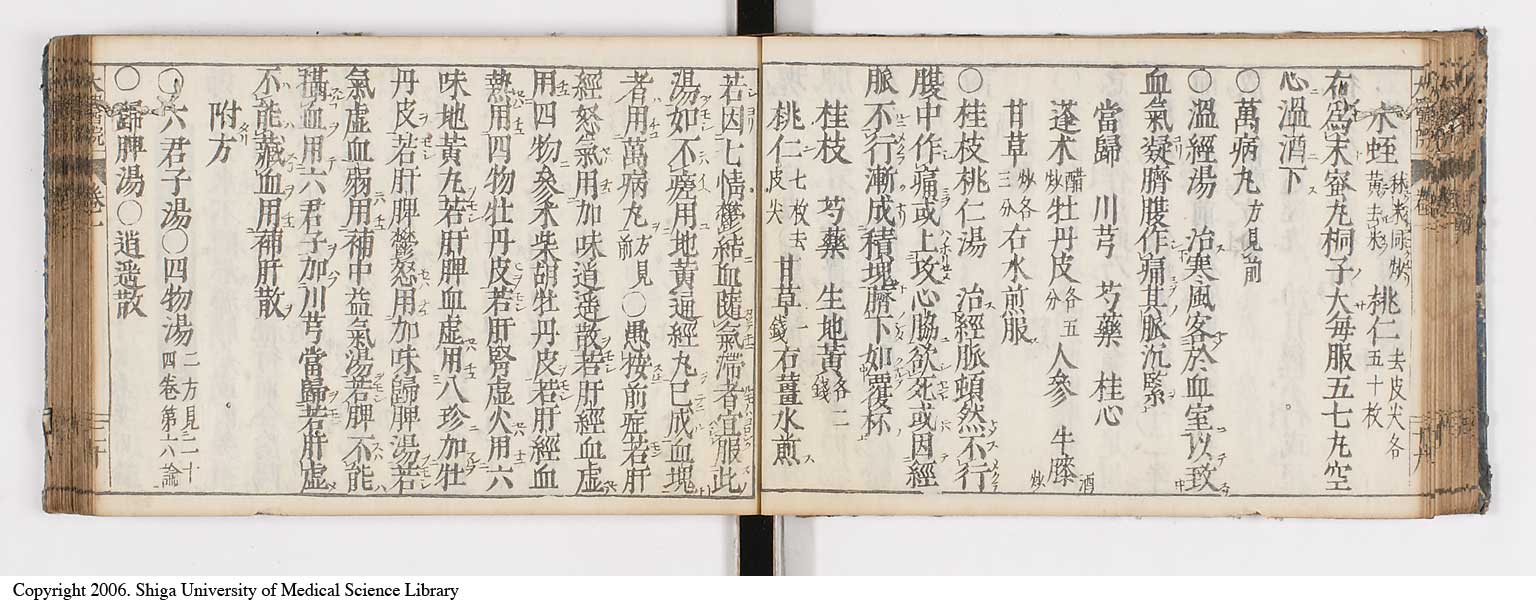 水蛭 桃仁去皮尖各五十枚
右為末蜜丸桐子大每服五七丸空
心溫酒下
○萬病丸方見前
○溫經湯 治寒風客於血室以致
血氣凝臍腹作痛其脈沉緊
當歸 川芎 芍藥 桂心
蓬朮醋炒牡丹皮各五分人參 牛膝酒炒
甘草炒各三分右水煎服
○桂枝桃仁湯 治經脈頓然不行
腹中作痛或上攻心脇欲死或因經
脈不行漸成積塊臍下如覆杯
桂枝 芍藥 生地黃各二錢
桃仁七枚去皮尖 甘草一錢右薑水煎
若因七情鬱結血隨氣滯者宜服此
湯如不瘥用地黃通經丸已成血塊
者用萬病丸方見前○愚按前症若肝
經怒氣用加味逍遥散若肝經血虛
用四物參朮柴胡牡丹皮若肝經血
熱用四物牡丹皮若肝腎虛火用六
味地黃丸若肝脾血虛用八珍加牡
丹皮若肝脾鬱怒用加味歸脾湯若
氣虛血弱用補中益氣湯若脾不能
攝血用六君子加川芎當歸若肝虛
不能藏血用補肝散
附方
○六君子湯○四物湯二方見二十四卷第六論
○歸脾湯○逍遥散
Copyright 2006. Shiga University of Medical Science Library